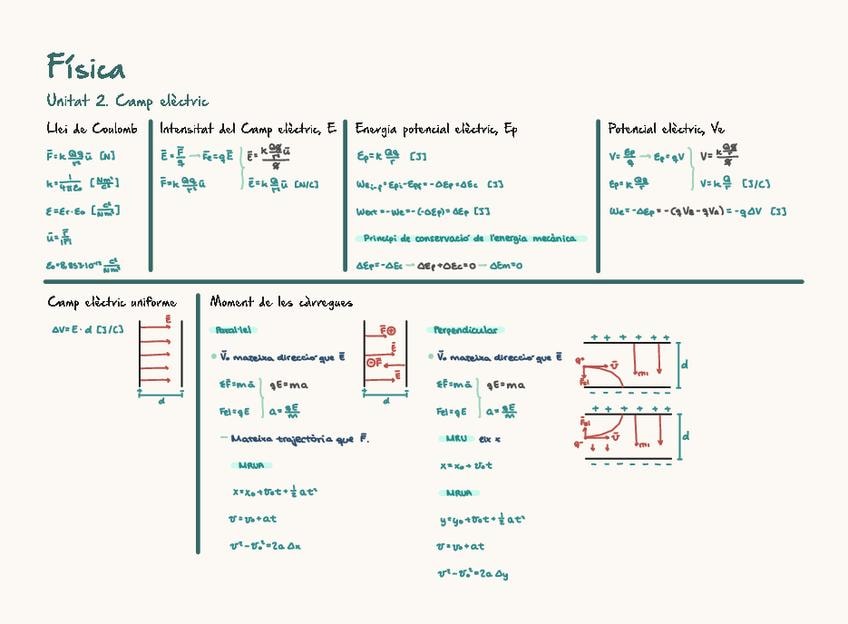 Física
Unitat 2. Camp elèctric
Llei de Coulomb
F̄=k Qq/r² ū [N]
k=1/4πε₀ [Nm²/C²]
ε=εr·ε₀ [C²/Nm²]
ū=r̄/|r̄|
ε₀=8,85·10⁻¹² C²/Nm²
Intensitat del Camp elèctric, E
Ē=F̄/q → Fe=qĒ
F̄=k Qq/r² ū
Ē=k Qq/r² ū/q
Ē=k Q/r² ū [N/C]
Energia potencial elèctric, Ep
Ep=k Qq/r [J]
We i-f=Epi-Epf=-ΔEp=ΔEc [J]
Wext=-We=-(-ΔEp)=ΔEp [J]
Principi de conservació de l'energia mecànica
ΔEp=-ΔEc → ΔEp+ΔEc=0 → ΔEm=0
Potencial elèctric, Ve
V=Ep/q → Ep=qV
Ep=k Qq/r
V=k Qq/r/q
V=k Q/r [J/C]
We=-ΔEp=-(qVB-qVA)=-qΔV [J]
Camp elèctric uniforme
ΔV=E·d [J/C]
Ē
d
Moment de les càrregues
Paral·lel
V̄₀ mateixa direcció que Ē
ΣF̄=mā
Fel=qE
qE=ma
a=qE/m
— Mateixa trajectòria que F̄.
MRUA
x=x₀+v₀t+½at²
v=v₀+at
v²-v₀²=2aΔx
F̄ +
Ē
-F̄
Ē
d
Perpendicular
V̄₀ mateixa direcció que Ē
ΣF̄=mā
Fel=qE
qE=ma
a=qE/m
MRU eix x
x=x₀+v₀t
MRUA
y=y₀+v₀t+½at²
v=v₀+at
v²-v₀²=2aΔy
+ + + + + +
v̄
F̄el
d
- - - - - - - -
+ + + + + +
F̄el
q⁻
v̄
d
- - - - - - - -